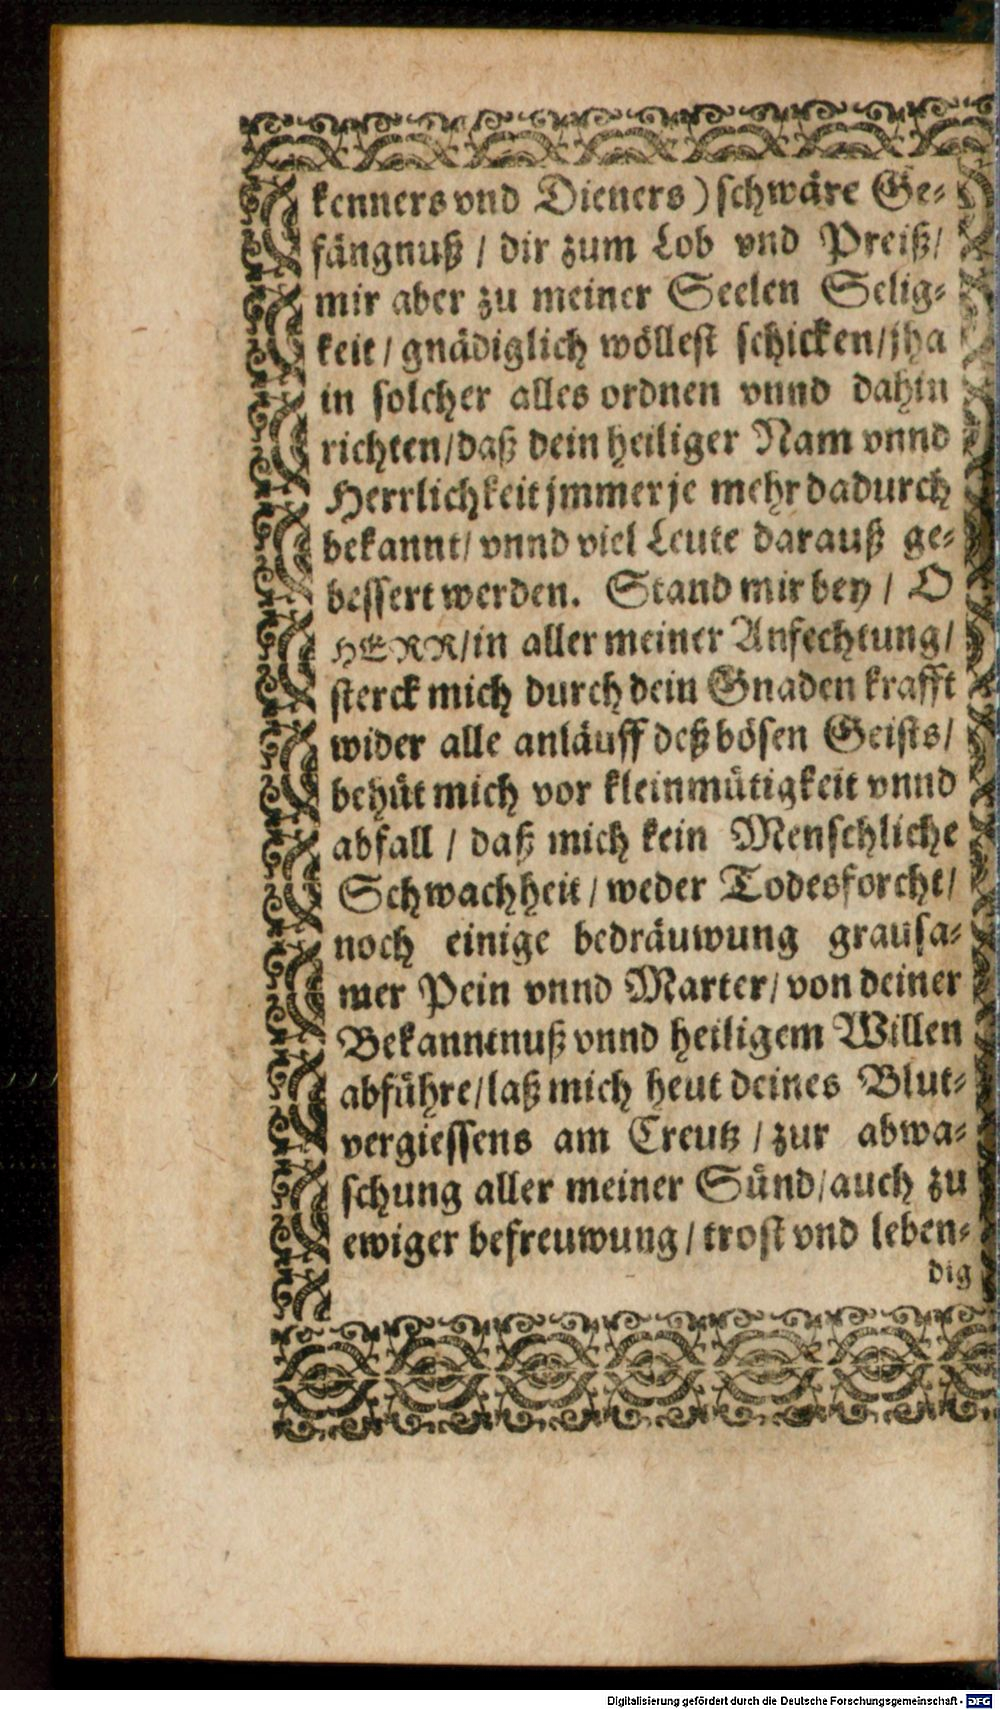 kenners vnd Dieners) schwäre Ge-
fängnuß / dir zum Lob vnd Preiß/
mir aber zu meiner Seelen Selig-
keit / gnädiglich wöllest schicken/jha
in solcher alles ordnen vnnd dahin
richten/daß dein heiliger Nam vnnd
Herrlichkeit jmmer je mehr dadurch
bekannt/ vnnd viel Leute darauß ge-
bessert werden. Stand mir bey / O
HERR/in aller meiner Anfechtung/
sterck mich durch dein Gnaden krafft
wider alle anläuff deß bösen Geists/
behüt mich vor kleinmütigkeit vnnd
abfall / daß mich kein Menschliche
Schwachheit / weder Todesforcht/
noch einige bedräuwung grausa-
mer Pein vnnd Marter/ von deiner
Bekanntnuß vnnd heiligem Willen
abführe/laß mich heut deines Blut-
vergiessens am Creutz / zur abwa-
schung aller meiner Sünd/auch zu
ewiger befreuwung / trost vnd leben-
dig
Digitalisierung gefördert durch die Deutsche Forschungsgemeinschaft - DFG